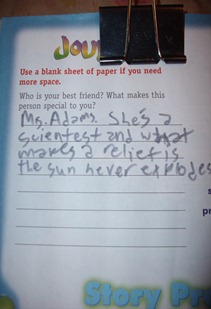 Jou
Use a blank sheet of paper if you need
more space.
Who is your best friend? What makes this
person special to you?
Ms. Adams. She's a
scientest and what
makes a relief is
the sun never explodes
s
pr
Story Pr